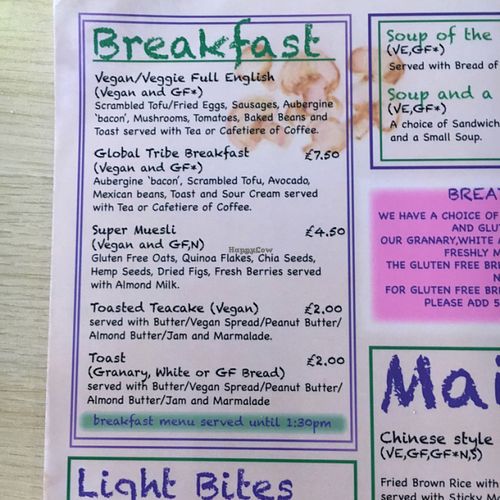 Breakfast
Vegan/Veggie Full English
(Vegan and GF*)
Scrambled Tofu/Fried Eggs, Sausages, Aubergine
'bacon', Mushrooms, Tomatoes, Baked Beans and
Toast served with Tea or Cafetiere of Coffee.
Global Tribe Breakfast £7.50
(Vegan and GF*)
Aubergine 'bacon', Scrambled Tofu, Avocado,
Mexican beans, Toast and Sour Cream served
with Tea or Cafetiere of Coffee.
Super Muesli £4.50
(Vegan and GF,N)
Gluten Free Oats, Quinoa Flakes, Chia Seeds,
Hemp Seeds, Dried Figs, Fresh Berries served
with Almond Milk.
Toasted Teacake (Vegan) £2.00
served with Butter/Vegan Spread/Peanut Butter/
Almond Butter/Jam and Marmalade.
Toast £2.00
(Granary, White or GF Bread)
served with Butter/Vegan Spread/Peanut Butter/
Almond Butter/Jam and Marmalade
breakfast menu served until 1:30pm
Light Bites
Soup of the
(VE,GF*)
Served with Bread of
Soup and a
(VE,GF*)
A choice of Sandwich
and a Small Soup.
BREA
WE HAVE A CHOICE OF
AND GLU
OUR GRANARY,WHITE A
FRESHLY M
THE GLUTEN FREE BRE
N
FOR GLUTEN FREE BRE
PLEASE ADD 5
Mai
Chinese style
(VE,GF,GF*N,S)
Fried Brown Rice with
served with Sticky M
HappyCow